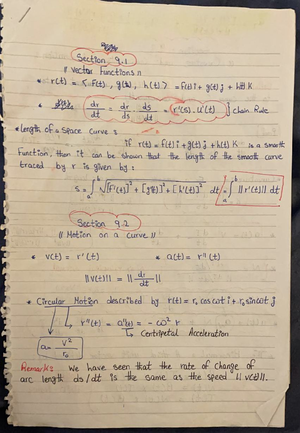 Section 9.1
// Vector Functions //
* r(t) = < f(t), g(t), h(t) > = f(t) i + g(t) j + h(t) k
* dr/dt = dr/ds . ds/dt = r'(s) . u'(t) } chain Rule
* Length of a Space Curve :
if r(t) = f(t) i + g(t) j + h(t) k is a smooth
function, then it can be shown that the length of the smooth curve
traced by r is given by :
s = ∫ₐᵇ √([f'(t)]² + [g'(t)]² + [h'(t)]²) dt = ∫ₐᵇ ||r'(t)|| dt
Section 9.2
// Motion on a curve //
* v(t) = r'(t) * a(t) = r''(t)
||v(t)|| = ||dr/dt||
* Circular Motion described by r(t) = r₀ cos ωt i + r₀ sin ωt j
r''(t) = a(t) = - ω² r
a = v²/r₀
Centripetal Acceleration
Remark : We have seen that the rate of change of
arc length ds/dt is the same as the speed ||v(t)||.